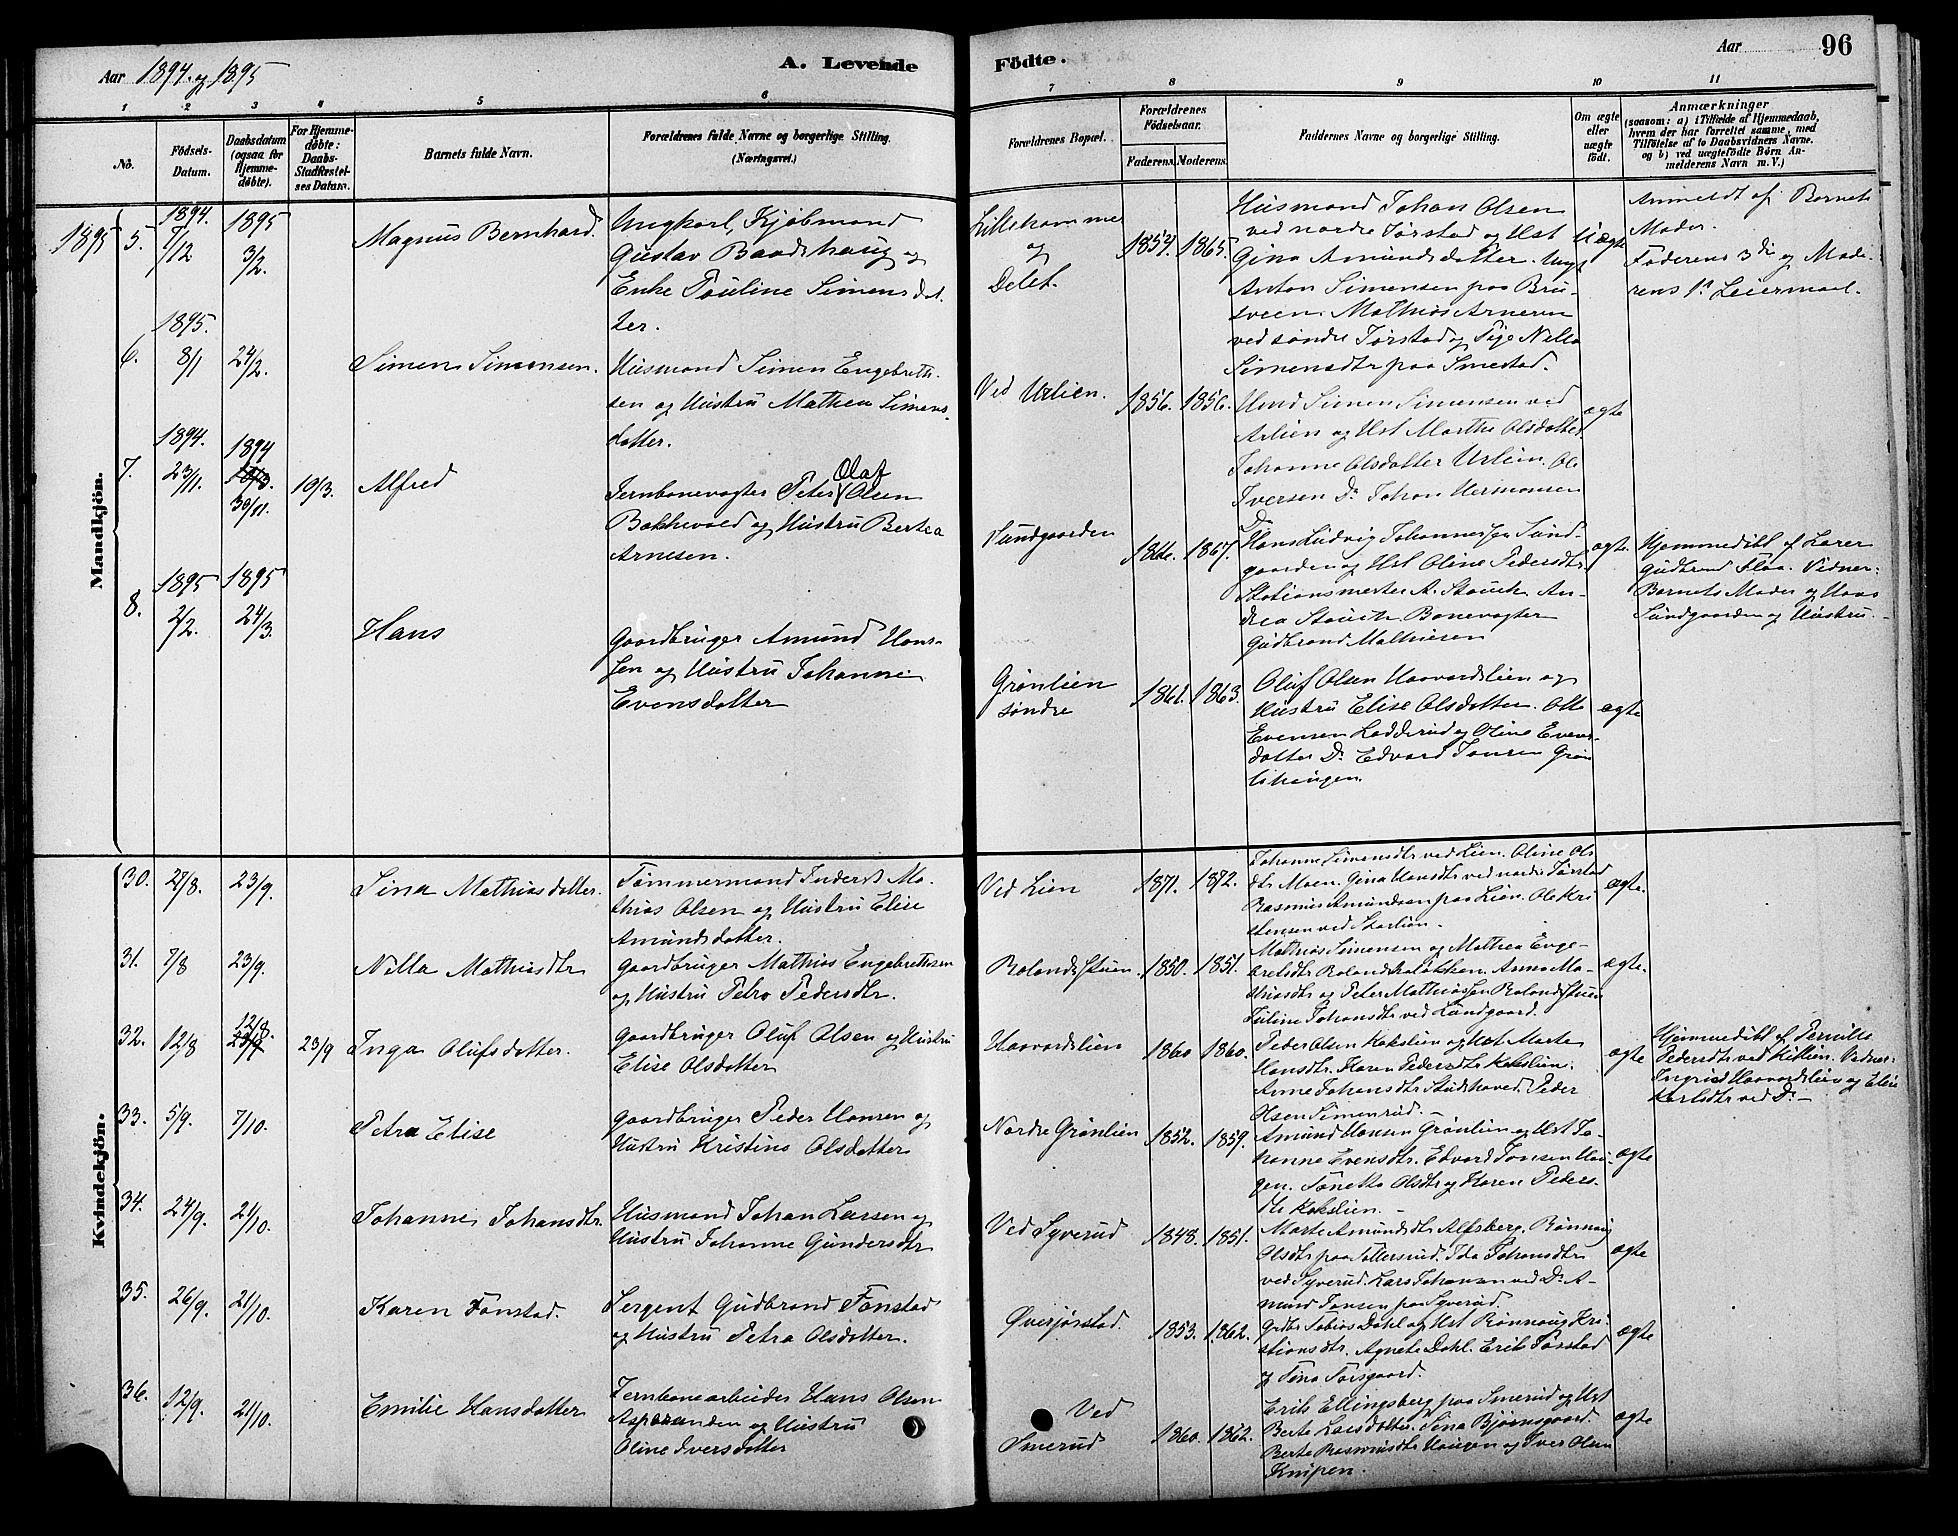 Aar 1894 og 1895
A. Levende
Födte.
Aar
96
1 2 3 4 5 6 7 8 9 10 11
No.
Födsels-
Datum.
Daabsdatum
(ogsaa for
Hjemme-
döbte).
For Hjemme-
döbte:
Daabs-
Stadfæstel-
ses Datum.
Barnets fulde Navn.
Forældrenes fulde Navne og borgerlige Stilling.
(Næringsvei.)
Forældrenes Bopæl.
Forældrenes
Födselsaar.
Faderens. Moderens.
Faddernes Navne og borgerlige Stilling.
Om ægte
eller
uægte
födt.
Anmærkninger
(saasom: a) i Tilfælde af Hjemmedaab,
hvem der har forrettet samme, med
Tilföielse af to Daabsvidners Navne.
og b) ved uægtefödte Börn An-
melderens Navn m. V.)
Mandkjön.
1895
5.
1894.
7/12
1895
3/2.
Magnus Bernhard.
Ungkarl, Kjøbmand
Gustav Baadshaug og
Enke Pauline Simensdat
ter.
Lillehammer
og
Delet.
1854. 1865.
Husmand Johan Olsen
ved nordre Jørstad og Hst
Gina Amundsdatter. Ungk
Anton Simensen paa Bru-
sveen. Mathias Arnesen
ved søndre Jørstad og Pige Nilla
Simensdtr paa Smestad.
Uægte
Anmeldt af Barnets
Moder.
Faderens 3die og Mode-
rens 1ste Leiermaal.
6.
1895.
8/1
24/2.
Simen Simensen.
Husmand Simen Engebreth-
sen og Hustru Mathea Simens-
datter.
Ved Urlien.
1856. 1856.
Hmd Simen Simensen ved
Urlien og Hst Marthe Olsdatter
Johanne Olsdatter Urlien. Ole
Iversen Do Johan Hermansen
Do
ægte
7.
1894.
23/11.
1894
10/3.
30/11.
10/3.
Alfred
Jernbanevogter Peter Olaf Olsen
Bakkevold og Hustru Bertea
Arnesen.
Sundgaarden
1866. 1867.
Hans Ludvig Johannessen Sund-
gaarden og Hst Oline Pedersdtr.
Stationsmester A. Stauch An-
drea Stauch Banevogter
Gudbrand Mathiesen
ægte.
Hjemmedöbt af Lærer
Gudbrand Flaa. Vidner:
Barnets Moder og Hans
Sundgaarden og Hustru.
8.
1895
2/2.
1895
24/3.
Hans
Gaardbruger Amund Han-
sen og Hustru Johanne
Evensdatter
Grønlien
søndre
1861. 1863.
Oluf Olsen Haavardslien og
Hustru Elise Olsdatter. Otto
Evensen Ladderud og Oline Evens-
datter Do Edvard Jonsen Grøn
lihaugen.
ægte
Kvindekjön.
30.
27/8.
23/9.
Sina Mathiasdatter.
Tømmermand Inderst Ma-
thias Olsen og Hustru Elise
Amundsdatter.
Ved Lien
1871. 1872.
Johanne Simensdtr ved Lien. Oline Ols
dtr Moen. Gina Hansdtr ved nordre Jørstad
Rasmus Amundsen paa Lien. Ole Kri
stensen ved Starlien.
ægte.
31.
7/8
23/9.
Nilla Mathiasdtr
Gaardbruger Mathias Engebrethsen
og Hustru Petra Pedersdtr.
Rolandsstuen
1850. 1851.
Mathias Simensen og Mathea Enge-
bretsdtr Rolandsløkken. Anna Ma-
thiasdtr og Peter Mathiassen Rolandsstuen
Juline Johansdtr ved Sundgaard.
ægte.
32.
12/8
12/8.
23/9
23/9
Inga Olufsdatter.
Gaardbruger Oluf Olsen og Hustru
Elise Olsdatter
Haavardslien
1860 1860.
Peder Olsen Kokslien og Hst Marte
Hansdtr. Karen Pedersdtr Kokslien.
Anne Johansdtr Studshoved. Peder
Olsen Simenrud.
ægte
Hjemmedöbt af Pernille
Pedersdtr ved Kiklien. Vidner:
Ingrid Haavardslien og Elise
Karlsdtr ved Do
33.
5/9.
7/10.
Petra Elise
Gaardbruger Peder Hansen og
Hustru Kristine Olsdatter
Nordre Grønlien
1852. 1859.
Amund Hansen Grønlien og Hst Jo-
hanne Evensdtr. Edvard Jonsen Hau-
gen. Tonetta Olsdtr og Karen Peders-
dtr Kokslien.
ægte
34.
24/9.
21/10.
Johanne Johansdtr.
Husmand Johan Larsen og
Hustru Johanne Gundersdtr
Ved Syverud
1848. 1851.
Marte Amundsdtr Alfsberg. Rønnaug
Olsdtr paa Tollersrud. Ida Johansdtr
ved Syverud. Lars Johansen ved Do A-
mund Jonsen paa Syverud.
ægte
35.
26/9.
21/10.
Karen Fonstad.
Sergent Gudbrand Fonstad
og Hustru Petra Olsdatter.
Øverjørstad.
1853. 1862.
Grdbr Tobias Dahl og Hst Rønnaug Kri-
stiansdtr. Agnete Dahl. Erik Jørstad
og Tina Forsgaard.
ægte
36.
12/9.
21/10.
Emilie Hansdatter
Jernbanearbeider Hans Olsen
Asperanden og Hustru
Oline Iversdatter
Ved
Smerud
1860. 1862.
Erik Ellingsberg paa Smerud og Hst
Berte Larsdatter. Sina Bjørnsgaard.
Berte Rasmusdtr Haugen og Iver Olsen
Knipen.
ægte